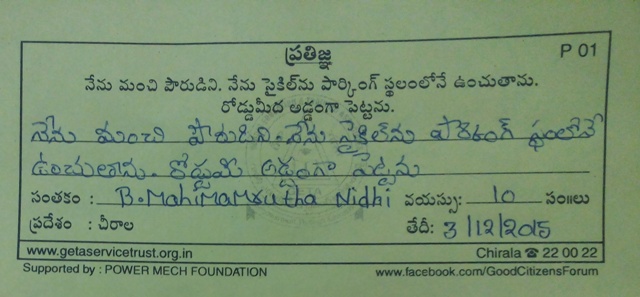 ప్రతిజ్ఞ P 01
నేను మంచి పౌరుడిని. నేను సైకిల్‌ను పార్కింగ్ స్థలంలోనే ఉంచుతాను.
రోడ్డుమీద అడ్డంగా పెట్టను.
నేను మంచి పౌరుడిని. నేను సైకిల్‌ను పార్కింగ్ స్థలంలోనే
ఉంచుతాను. రోడ్డుమీ అడ్డంగా పెట్టను
సంతకం : B. Mahimamrutha Nidhi వయస్సు: 10 సం॥లు
ప్రదేశం : చీరాల తేదీ: 3/12/2015
www.getaservicetrust.org.in Chirala ☎ 22 00 22
Supported by : POWER MECH FOUNDATION www.facebook.com/GoodCitizensForum